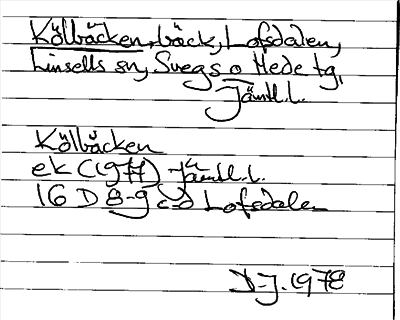 Kölbäcken, bäck, Lofsdalen,
Linsells sn, Svegs o Hede tg,
Jämtl.l.
Kölbäcken
ek (1977) Jämtl.l.
16 D 8-g c-d Lofsdalen
D-J. 1978